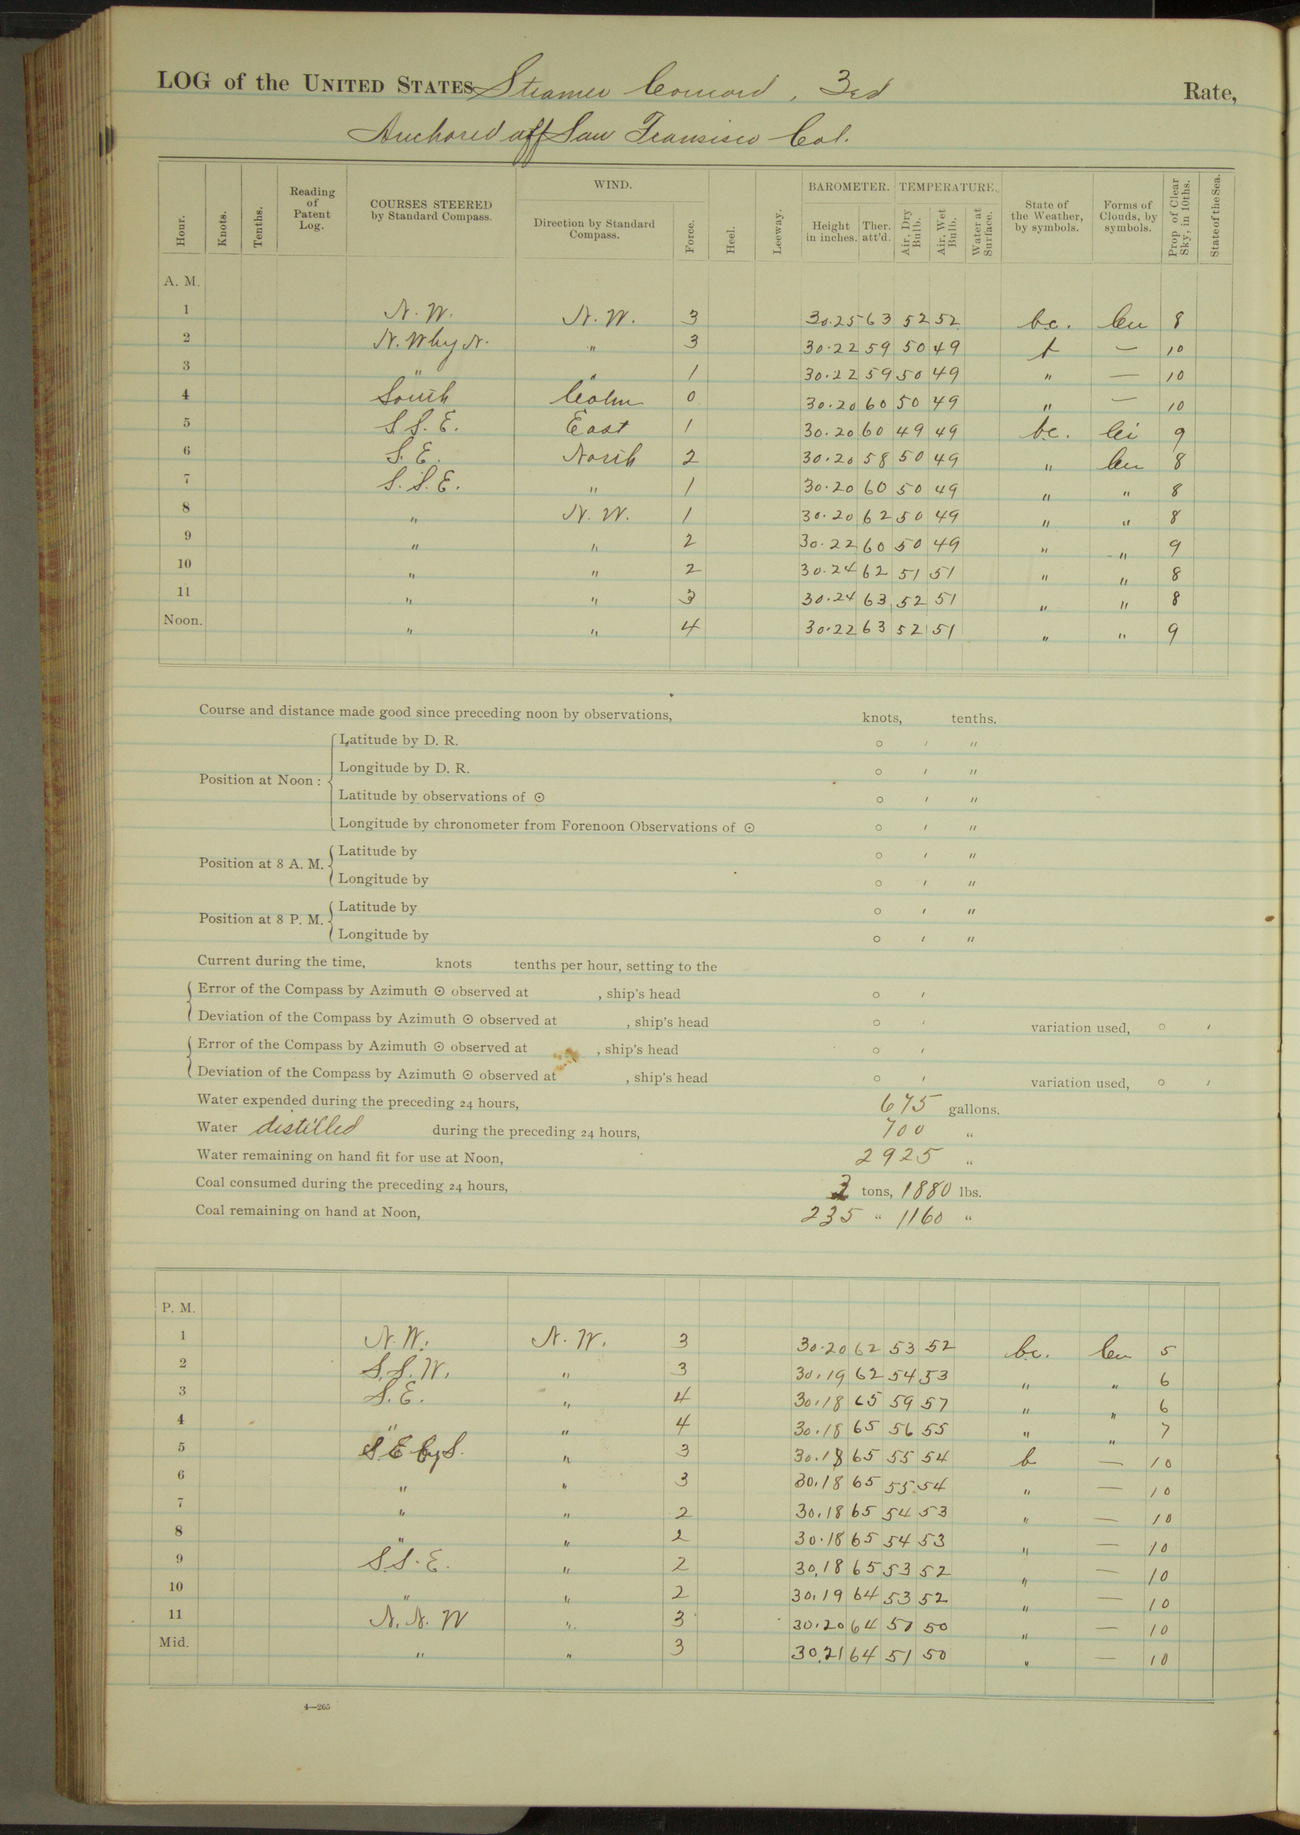 LOG of the UNITED STATES Steamer Concord, 3rd Rate,
Anchored off San Fransisco Cal.
Hour. Knots. Tenths. Reading of Patent Log. COURSES STEERED by Standard Compass. WIND. Direction by Standard Compass. Force. Heel. Leeway. BAROMETER. Height in inches. Ther. att'd. TEMPERATURE. Air, Dry Bulb. Air, Wet Bulb. Water at Surface. State of the Weather, by symbols. Forms of Clouds, by symbols. Prop. of Clear Sky, in 10ths. State of the Sea.
A. M.
1 N. W. N. W. 3 30.25 63 52 52 b.c. cu 8
2 N. W by N. " 3 30.22 59 50 49 b — 10
3 " " 1 30.22 59 50 49 " — 10
4 South Calm 0 30.20 60 50 49 " — 10
5 S. S. E. East 1 30.20 60 49 49 b.c. ci 9
6 S. E. North 2 30.20 58 50 49 " cu 8
7 S. S. E. " 1 30.20 60 50 49 " " 8
8 " N. W. 1 30.20 62 50 49 " " 8
9 " " 2 30.22 60 50 49 " " 9
10 " " 2 30.24 62 51 51 " " 8
11 " " 3 30.24 63 52 51 " " 8
Noon. " " 4 30.22 63 52 51 " " 9
Course and distance made good since preceding noon by observations, knots, tenths.
Position at Noon: Latitude by D. R. ° ′ ″
Longitude by D. R. ° ′ ″
Latitude by observations of ☉ ° ′ ″
Longitude by chronometer from Forenoon Observations of ☉ ° ′ ″
Position at 8 A. M. Latitude by ° ′ ″
Longitude by ° ′ ″
Position at 8 P. M. Latitude by ° ′ ″
Longitude by ° ′ ″
Current during the time, knots tenths per hour, setting to the
Error of the Compass by Azimuth ☉ observed at , ship's head ° ′
Deviation of the Compass by Azimuth ☉ observed at , ship's head ° ′ variation used, ° ′
Error of the Compass by Azimuth ☉ observed at , ship's head ° ′
Deviation of the Compass by Azimuth ☉ observed at , ship's head ° ′ variation used, ° ′
Water expended during the preceding 24 hours, 675 gallons.
Water distilled during the preceding 24 hours, 700 "
Water remaining on hand fit for use at Noon, 2925 "
Coal consumed during the preceding 24 hours, tons, 1880 lbs.
Coal remaining on hand at Noon, 235 " 1160 "
P. M.
1 N. W. N. W. 3 30.20 62 53 52 b.c. cu 5
2 S. S. W. " 3 30.19 62 54 53 " " 6
3 S. E. " 4 30.18 65 59 57 " " 6
4 " " 4 30.18 65 56 55 " " 7
5 S E by S. " 3 30.18 65 55 54 b — 10
6 " " 3 30.18 65 55 54 " — 10
7 " " 2 30.18 65 54 53 " — 10
8 " " 2 30.18 65 54 53 " — 10
9 S. S. E. " 2 30.18 65 53 52 " — 10
10 " " 2 30.19 64 53 52 " — 10
11 N. N. W " 3 30.20 64 51 50 " — 10
Mid. " " 3 30.21 64 51 50 " — 10
4—265